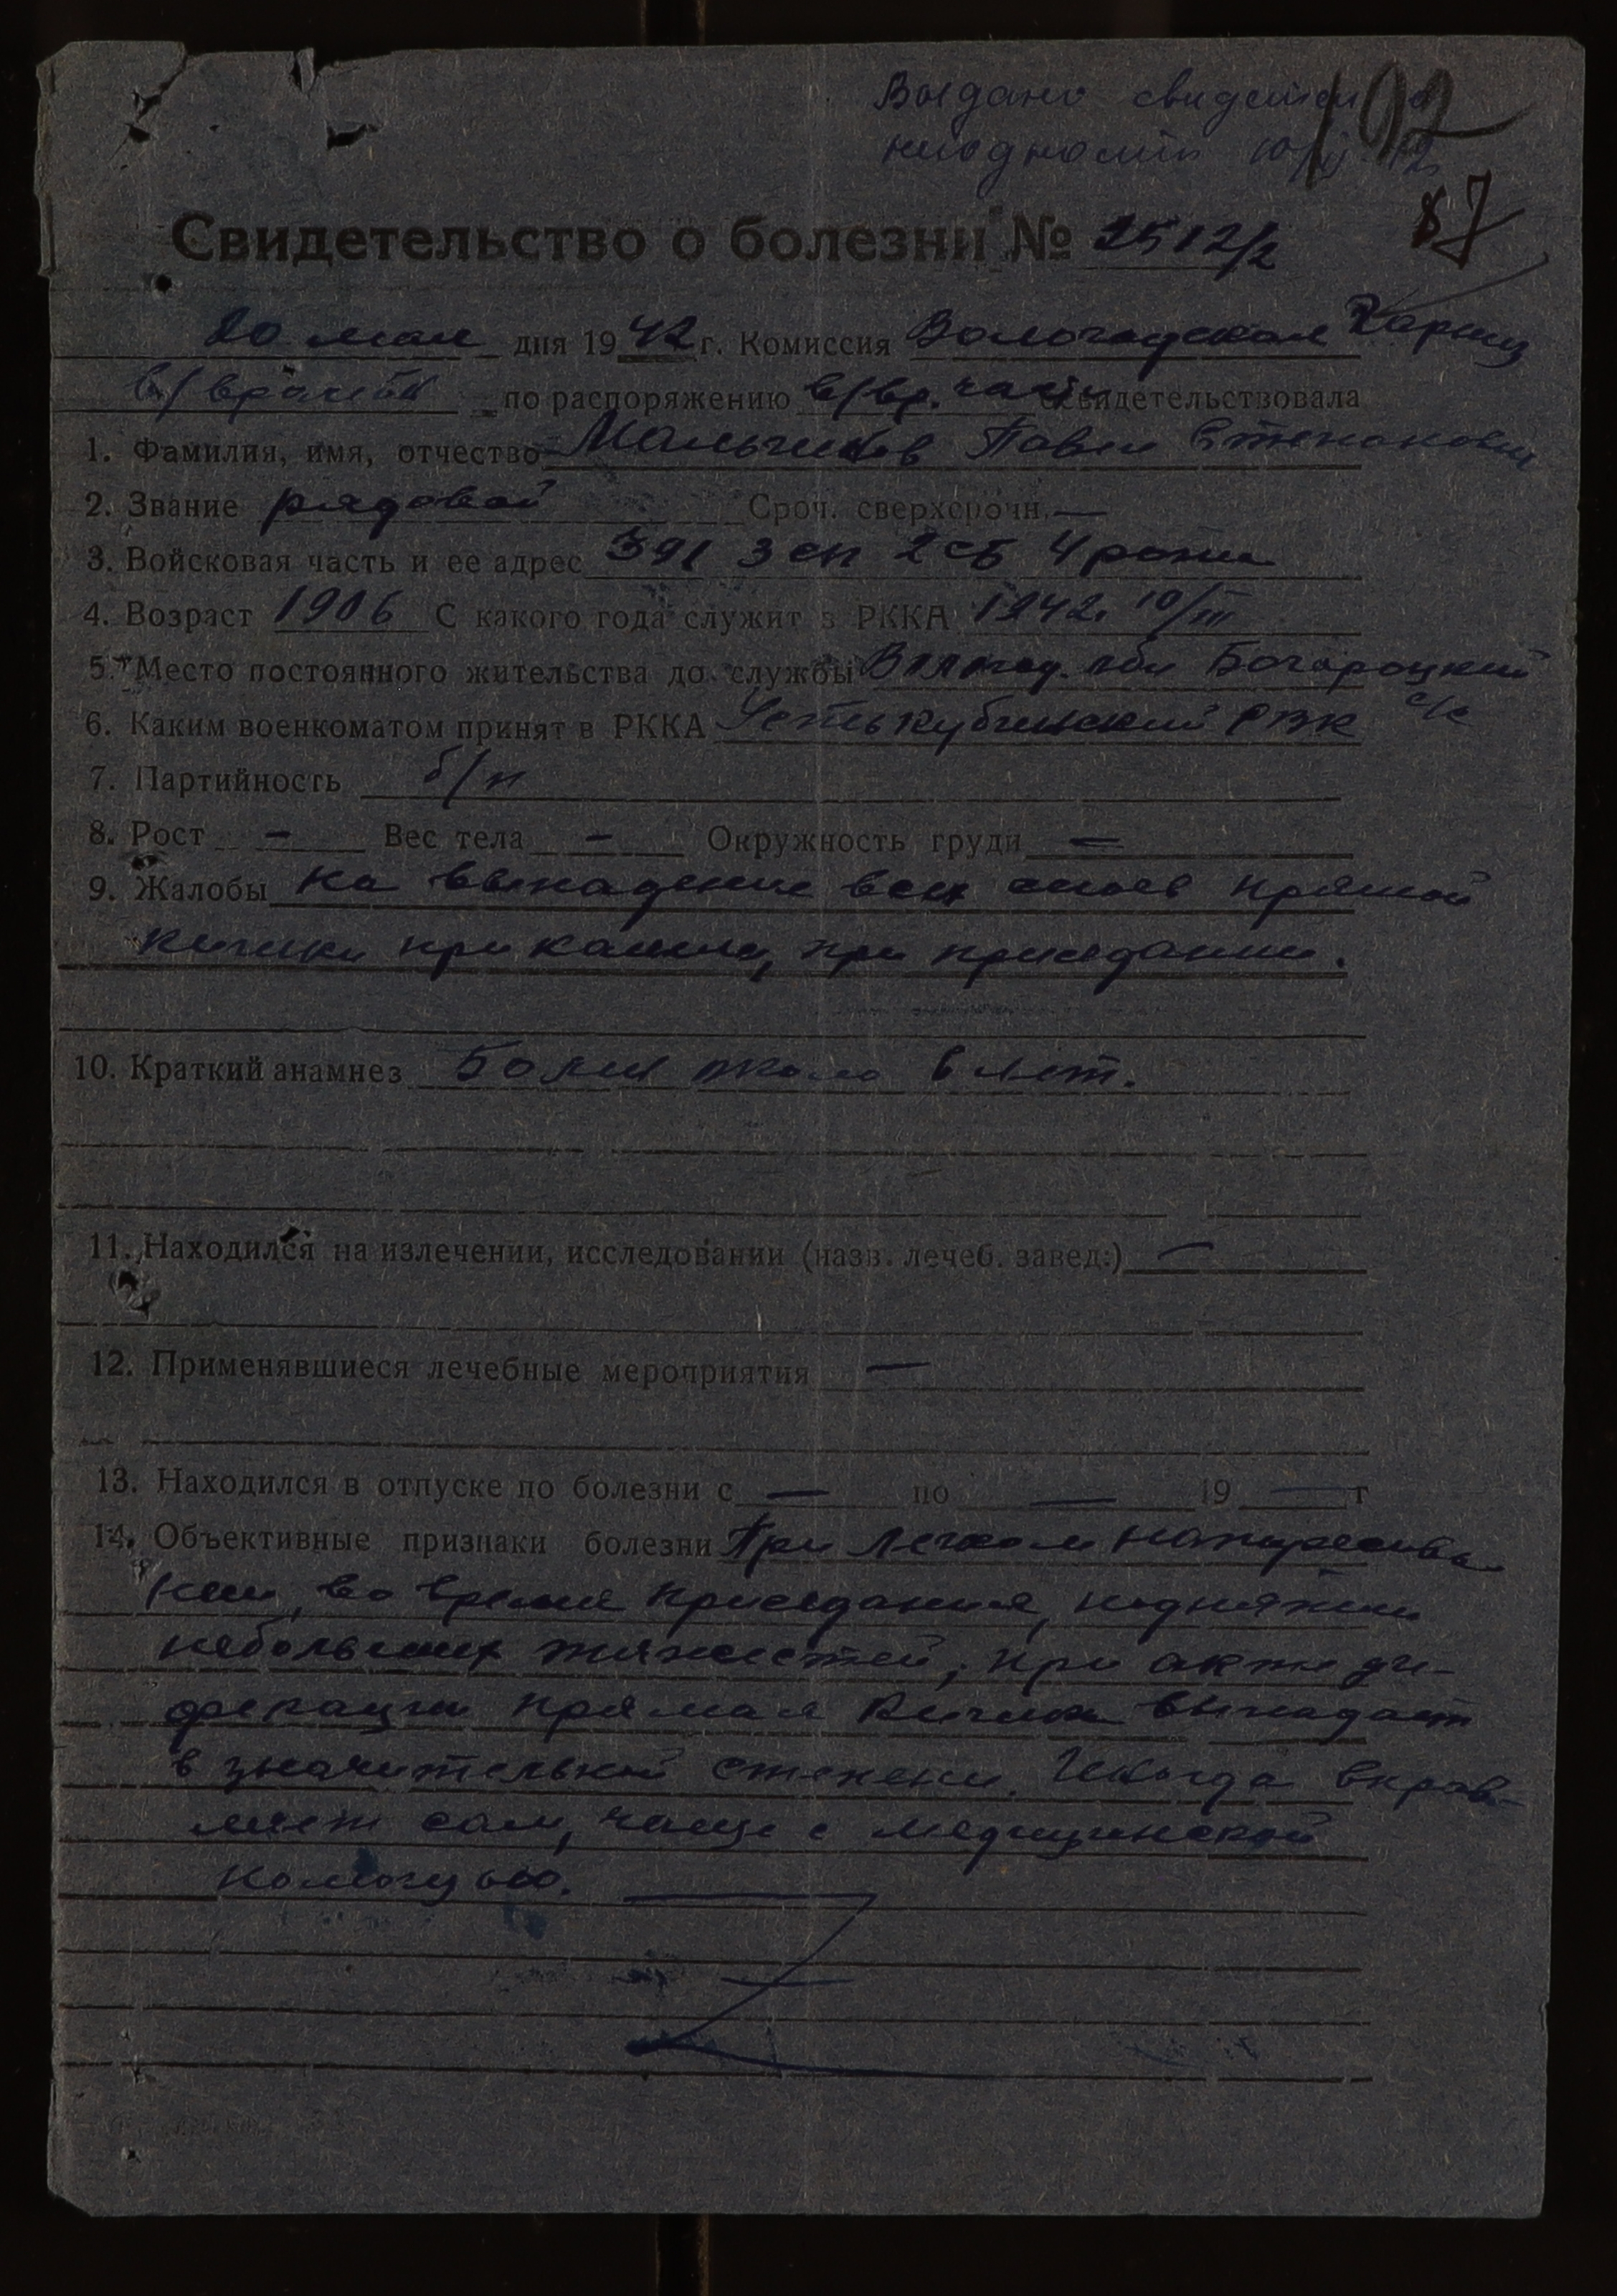 Выдано свидетел о
192
87
Свидетельство о болезни № 2512/2
20 мая дня 1942 г. Комиссия Вологодская Гарниз
в/врачебн по распоряжению в/вр. части освидетельствовала
1. Фамилия, имя, отчество Мальчиков Павел Степанович
2. Звание рядовой Сроч. сверхсрочн. —
3. Войсковая часть и ее адрес 391 зсп 2 сб 4 рота
4. Возраст 1906 С какого года служит в РККА 1942. 10/III
5. Место постоянного жительства до службы Волгод. обл Богороцкий
с/с
6. Каким военкоматом принят в РККА Устькубинский РВК
7. Партийность б/п
8. Рост - Вес тела - Окружность груди —
9. Жалобы На выпадение всех слоев прямой
кишки при кашле, при приседании.
10. Краткий анамнез Болен около 6 лет.
11. Находился на излечении, исследовании (назв. лечеб. завед.) —
12. Применявшиеся лечебные мероприятия —
13. Находился в отпуске по болезни с — по — 19 — г
14. Объективные признаки болезни При легком натужива-
нии, во время приседания, поднятии
небольших тяжестей, при акте де-
фекации прямая кишка выпадает
в значительной степени. Иногда вправ-
ляет сам, чаще с медицинской
помощью.